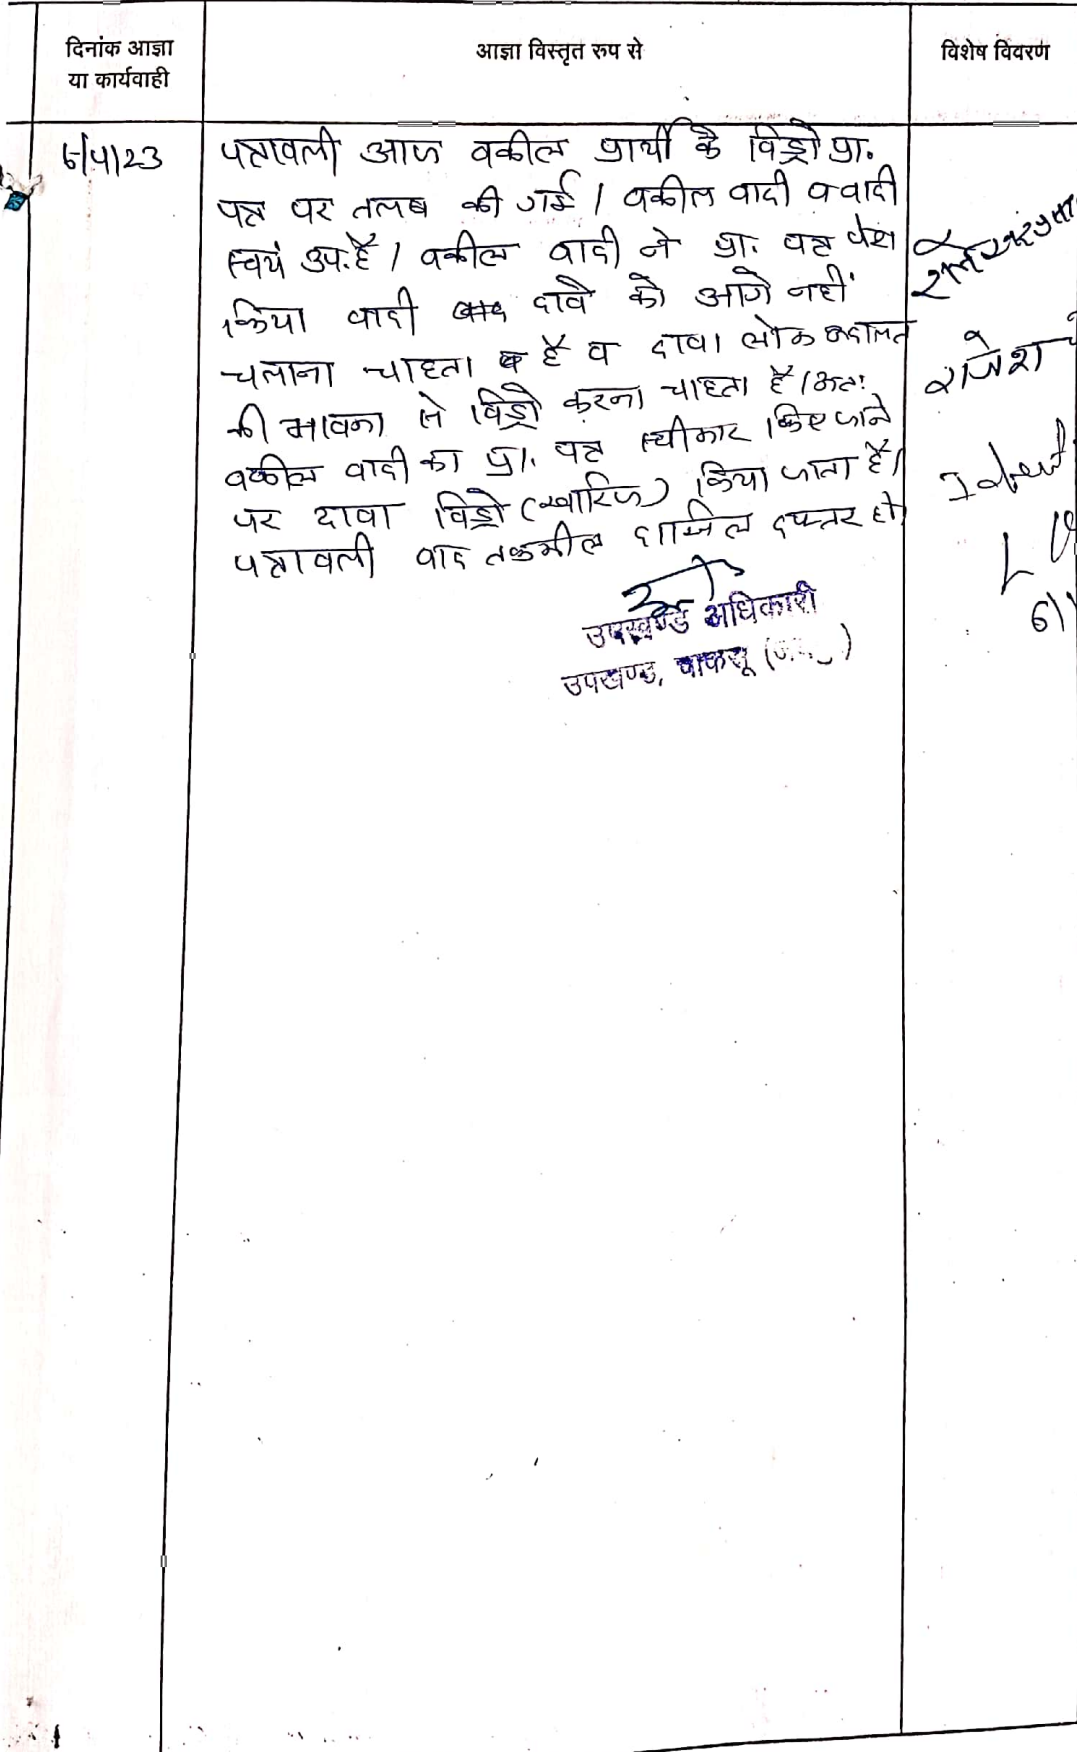 दिनांक आज्ञा
या कार्यवाही
आज्ञा विस्तृत रुप से
विशेष विवरण
6/4/23
पत्रावली आज वकील प्रार्थी के विड्रो प्रा.
पत्र पर तलब की गई। वकील वादी व वादी
स्वयं उप. है। वकील वादी ने प्रा. पत्र पेश
किया वादी दावे को आगे नहीं
चलाना चाहता है व दावा लोक अदालत
की भावना से विड्रो करना चाहता है। अतः
वकील वादी का प्रा. पत्र स्वीकार किए जाने
पर दावा विड्रो (खारिज) किया जाता है।
पत्रावली बाद तकमील दाखिल दफ्तर हो
उपखण्ड अधिकारी
उपखण्ड, चाकसू
राजेश